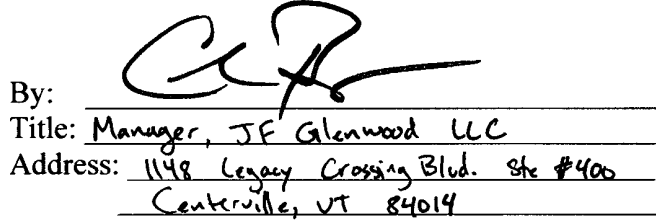 By:
Title: Manager, JF Glenwood LLC
Address: 1148 Legacy Crossing Blvd. Ste #400
Centerville, UT 84014